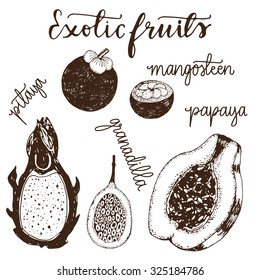 Exotic fruits
mangosteen
pitaya
papaya
granadilla
shutterstock.com · 325184786